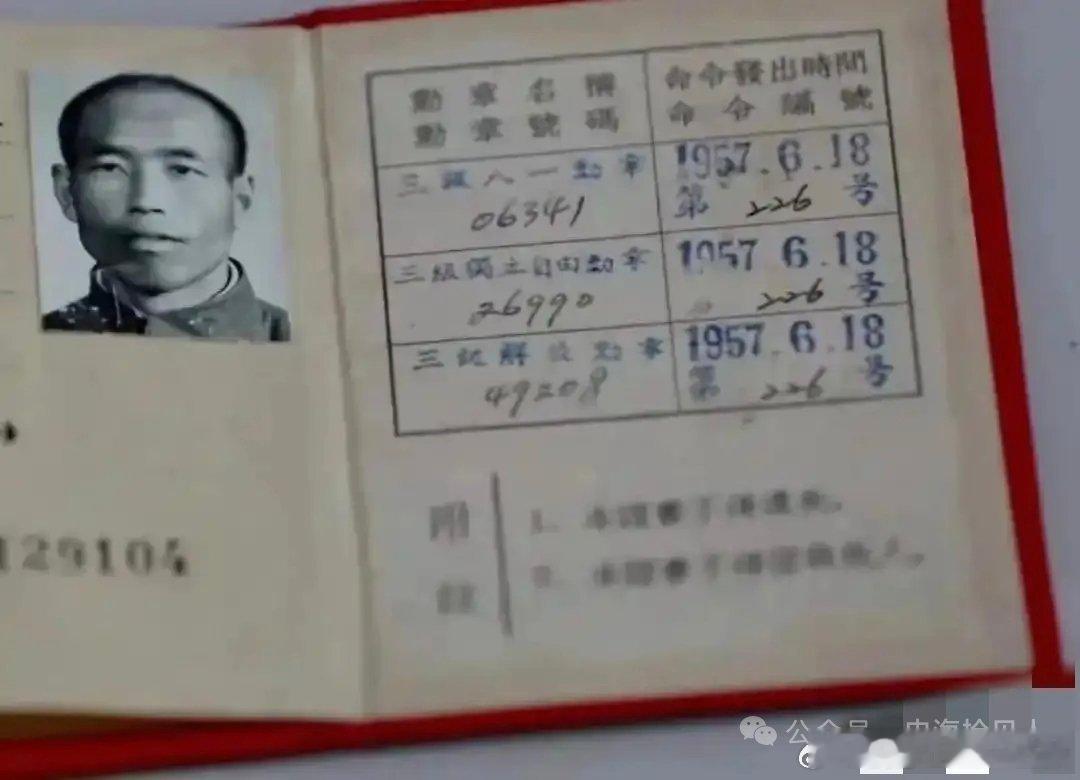 129104
勳章名稱
勳章號碼
命令發出時間
命令編號
三級八一勳章
06341
1957.6.18
第 226 号
三级獨立自由勳章
26990
1957 6.18
226 号
三級解放勳章
49208
1957.6.18
第 226 号
附
註
1. 本證書不得遺失。
2.
公众号